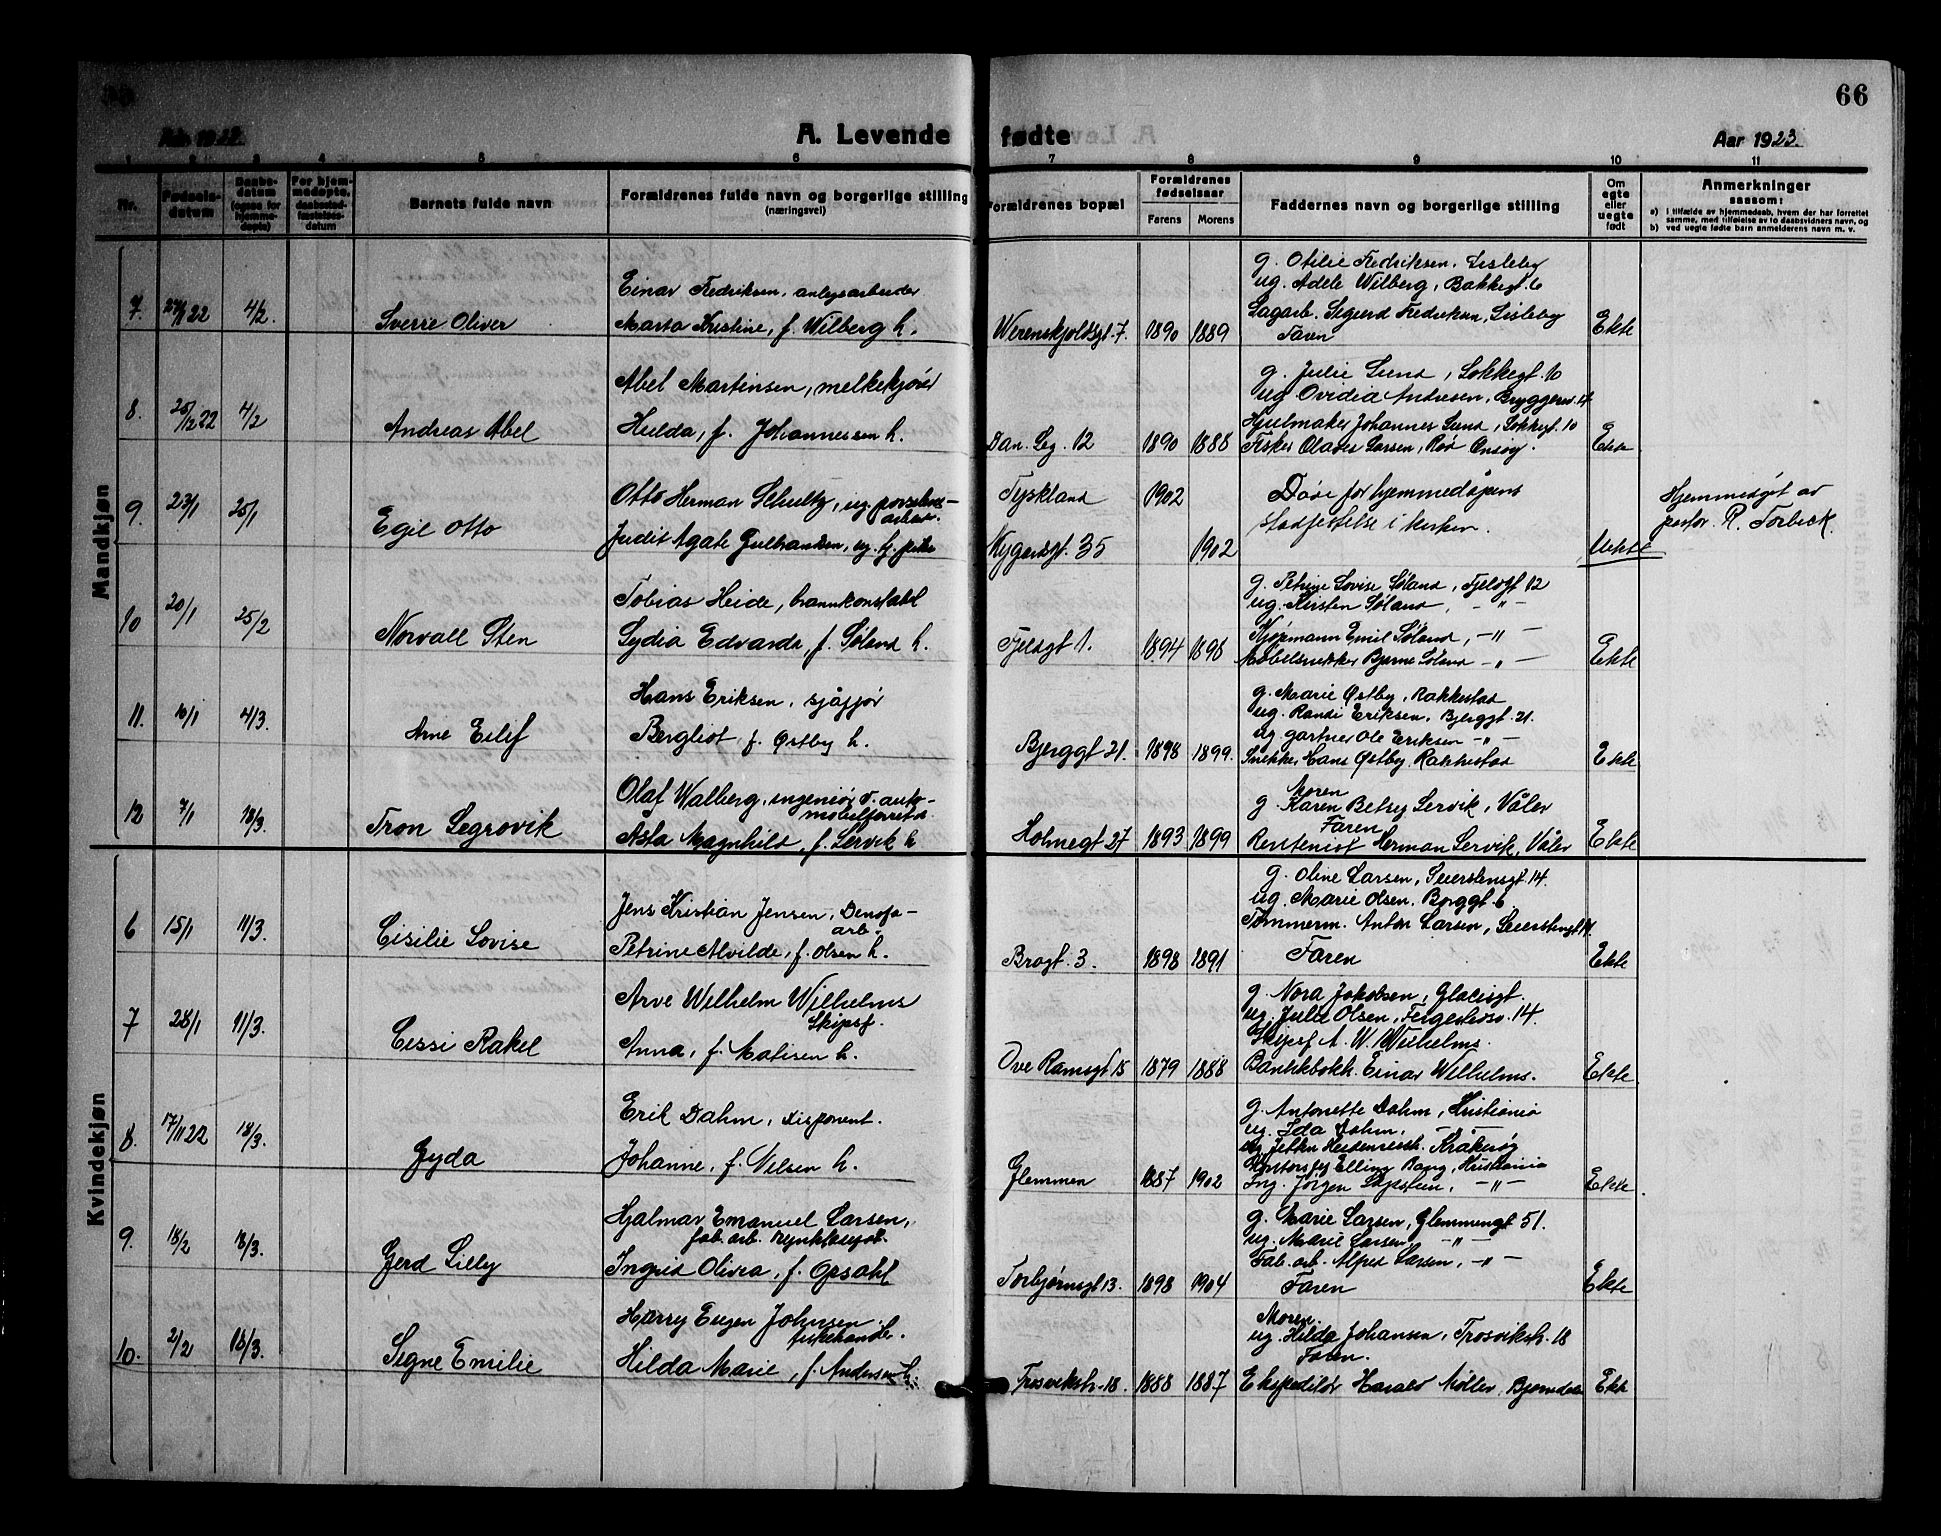 66
A. Levende fødte
Aar 1923.
1 2 3 4 5 6 7 8 9 10 11
Nr.
Fødselsdatum
Daabsdatum (ogsaa for hjemmedøpte)
For hjemmedøpte, daabsstadfæstelsesdatum
Barnets fulde navn
Forældrenes fulde navn og borgerlige stilling
(næringsvei)
Forældrenes bopæl
Forældrenes fødselsaar
Farens Morens
Faddernes navn og borgerlige stilling
Om egte eller uegte født
Anmerkninger
saasom:
a) i tilfælde av hjemmedaab, hvem der har forrettet samme, med tilføielse av to daabsvidners navn, og
b) ved uegte fødte barn anmelderens navn m. v.
Mandkjøn
7. 4/2 Sverre Oliver
Einar Fredriksen, anlegsarbeider
Marta Kristine, f. Wilberg h.
Werenskjoldsgt. 7. 1890 1889
g. Otilie Fredriksen, Lisleby
ug. Adele Wilberg, Bakkegt. 6
Sagarb. Sigurd Fredriksen, Lisleby
Faren
Ekte
8. 25/12 22 4/2 Andreas Abel
Abel Martinsen, melkekjører
Hulda, f. Johannessen h.
Dan. Leg. 12 1890 1888
g. Julie Lund, Sokkegt. 10
ug Ovidia Andresen, Bryggeriv. 14
Hjulmaker Johannes Lund, Sokkegt. 10
Fisker Olaves Larsen, Rød Onsøy.
Ekte
9. 23/1 25/1 Egil Otto
Otto Herman Schultz, ug. porselensarbeider.
Judit Agate Gulbrandsen, ug. h. pike
Tyskland 1902
Nygaardsgt. 35 1902
Døde før hjemmedåpens
stadfestelse i kirken.
Uekte
Hjemmedøpt av
pastor R. Torbeck.
10 20/1 25/2 Norvall Sten
Tobias Heide, brannkonstabel
Lydia Edvarda, f. Søland h.
Fjeldgt 1. 1894 1898
g. Petrine Lovise Søland, Fjeldgt 12
ug. Kirsten Søland, - " -
Kjøpmann Emil Søland, - " -
Møbelsnekker Bjarne Søland - " -
Ekte
11. 4/3 Arne Eilif
Hans Eriksen, sjåfør
Bergliot f. Østby h.
Bjerggt 21. 1898 1899.
g. Marie Østby, Rakkestad
ug. Randi Eriksen, Bjerggt. 21.
ug gartner Ole Eriksen - " -
Snekker Hans Østby, Rakkestad
Ekte
12 7/1 18/3. Tron Segrovik
Olaf Walberg, ingeniør v. automobilforretn.
Åsta Magnhild, f. Lervik h
Holmegt 27 1893 1899
Moren
g. Karen Betsy Lervik, Våler
Faren
Rentenist Herman Lervik, Våler
Ekte
Kvindekjøn
6 15/1 11/3. Cisilie Lovise
Jens Kristian Jensen, Denofa-arb.
Petrine Alvilde, f. Olsen h.
Brogt. 3. 1898 1891
g. Oline Larsen, Seierstensgt 14.
ug. Marie Olsen, Borggt 6
Tømmerm. Anton Larsen, Seierstensgt 14.
Faren
Ekte
7 28/1 11/3. Cissi Rakel
Arve Wilhelm Wilhelms
Skipsf.
Anna, f. Matisen h.
Ove Ramsgt 15 1879 1888
g. Nora Jakobsen, Glacisgt.
ug. Julie Olsen, Fergestedsv. 14.
Skipsf A. W. Wilhelms.
Bankbokh. Einar Wilhelms.
Ekte
8. 17/11 22 18/3. Gyda
Erik Dahm, disponent.
Johanne, f. Nilsen h.
Glemmen 1887 1902
g. Antonette Dahm, Kristiania
ug. Ida Dahm, - " -
Kråkerøy
Kontorsjef Elling Bang, Kristiania
Ing. Jørgen - " -
Ekte
9. 18/2 18/3. Gerd Lilly
Hjalmar Emanuel Larsen,
fab. arb.
Ingrid Olivia, f. Opsahl
Torbjørnsgt 13. 1898 1904
g. Marie Larsen, Glemmengt 51.
ug. Marie Larsen, - " -
Fab. arb. Alfred Larsen, - " -
Faren
Ekte
10. 2/2 18/3. Signe Emilie
Harry Eugen Johnsen
fiskehandler.
Hilda Marie, f. Andersen h.
Trosvikstr. 18. 1888 1887
Moren.
ug. Hilda Johansen, Trosvikstr. 18
Faren.
Ekspeditør Harald Møller, Bjørndalen
Ekte